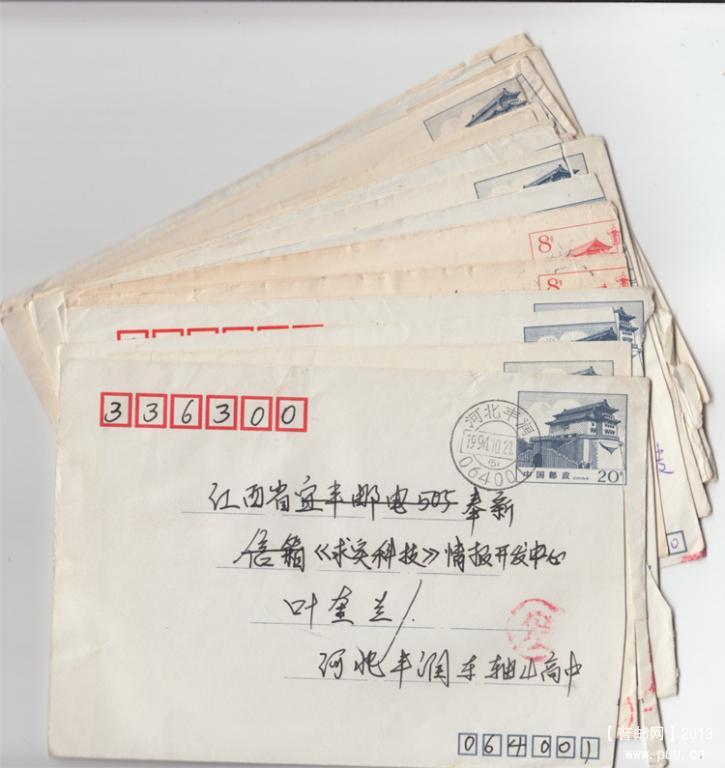 8分
8分
336300
河北丰润
1994.10.21
(5)
064001
中国邮政 CHINA
20分
江西省宜丰邮电505奉新
信箱《求实科技》情报开发中心
叶奎兰
河北丰润车轴山高中
064001
【普邮网】2013
www.puu.cn